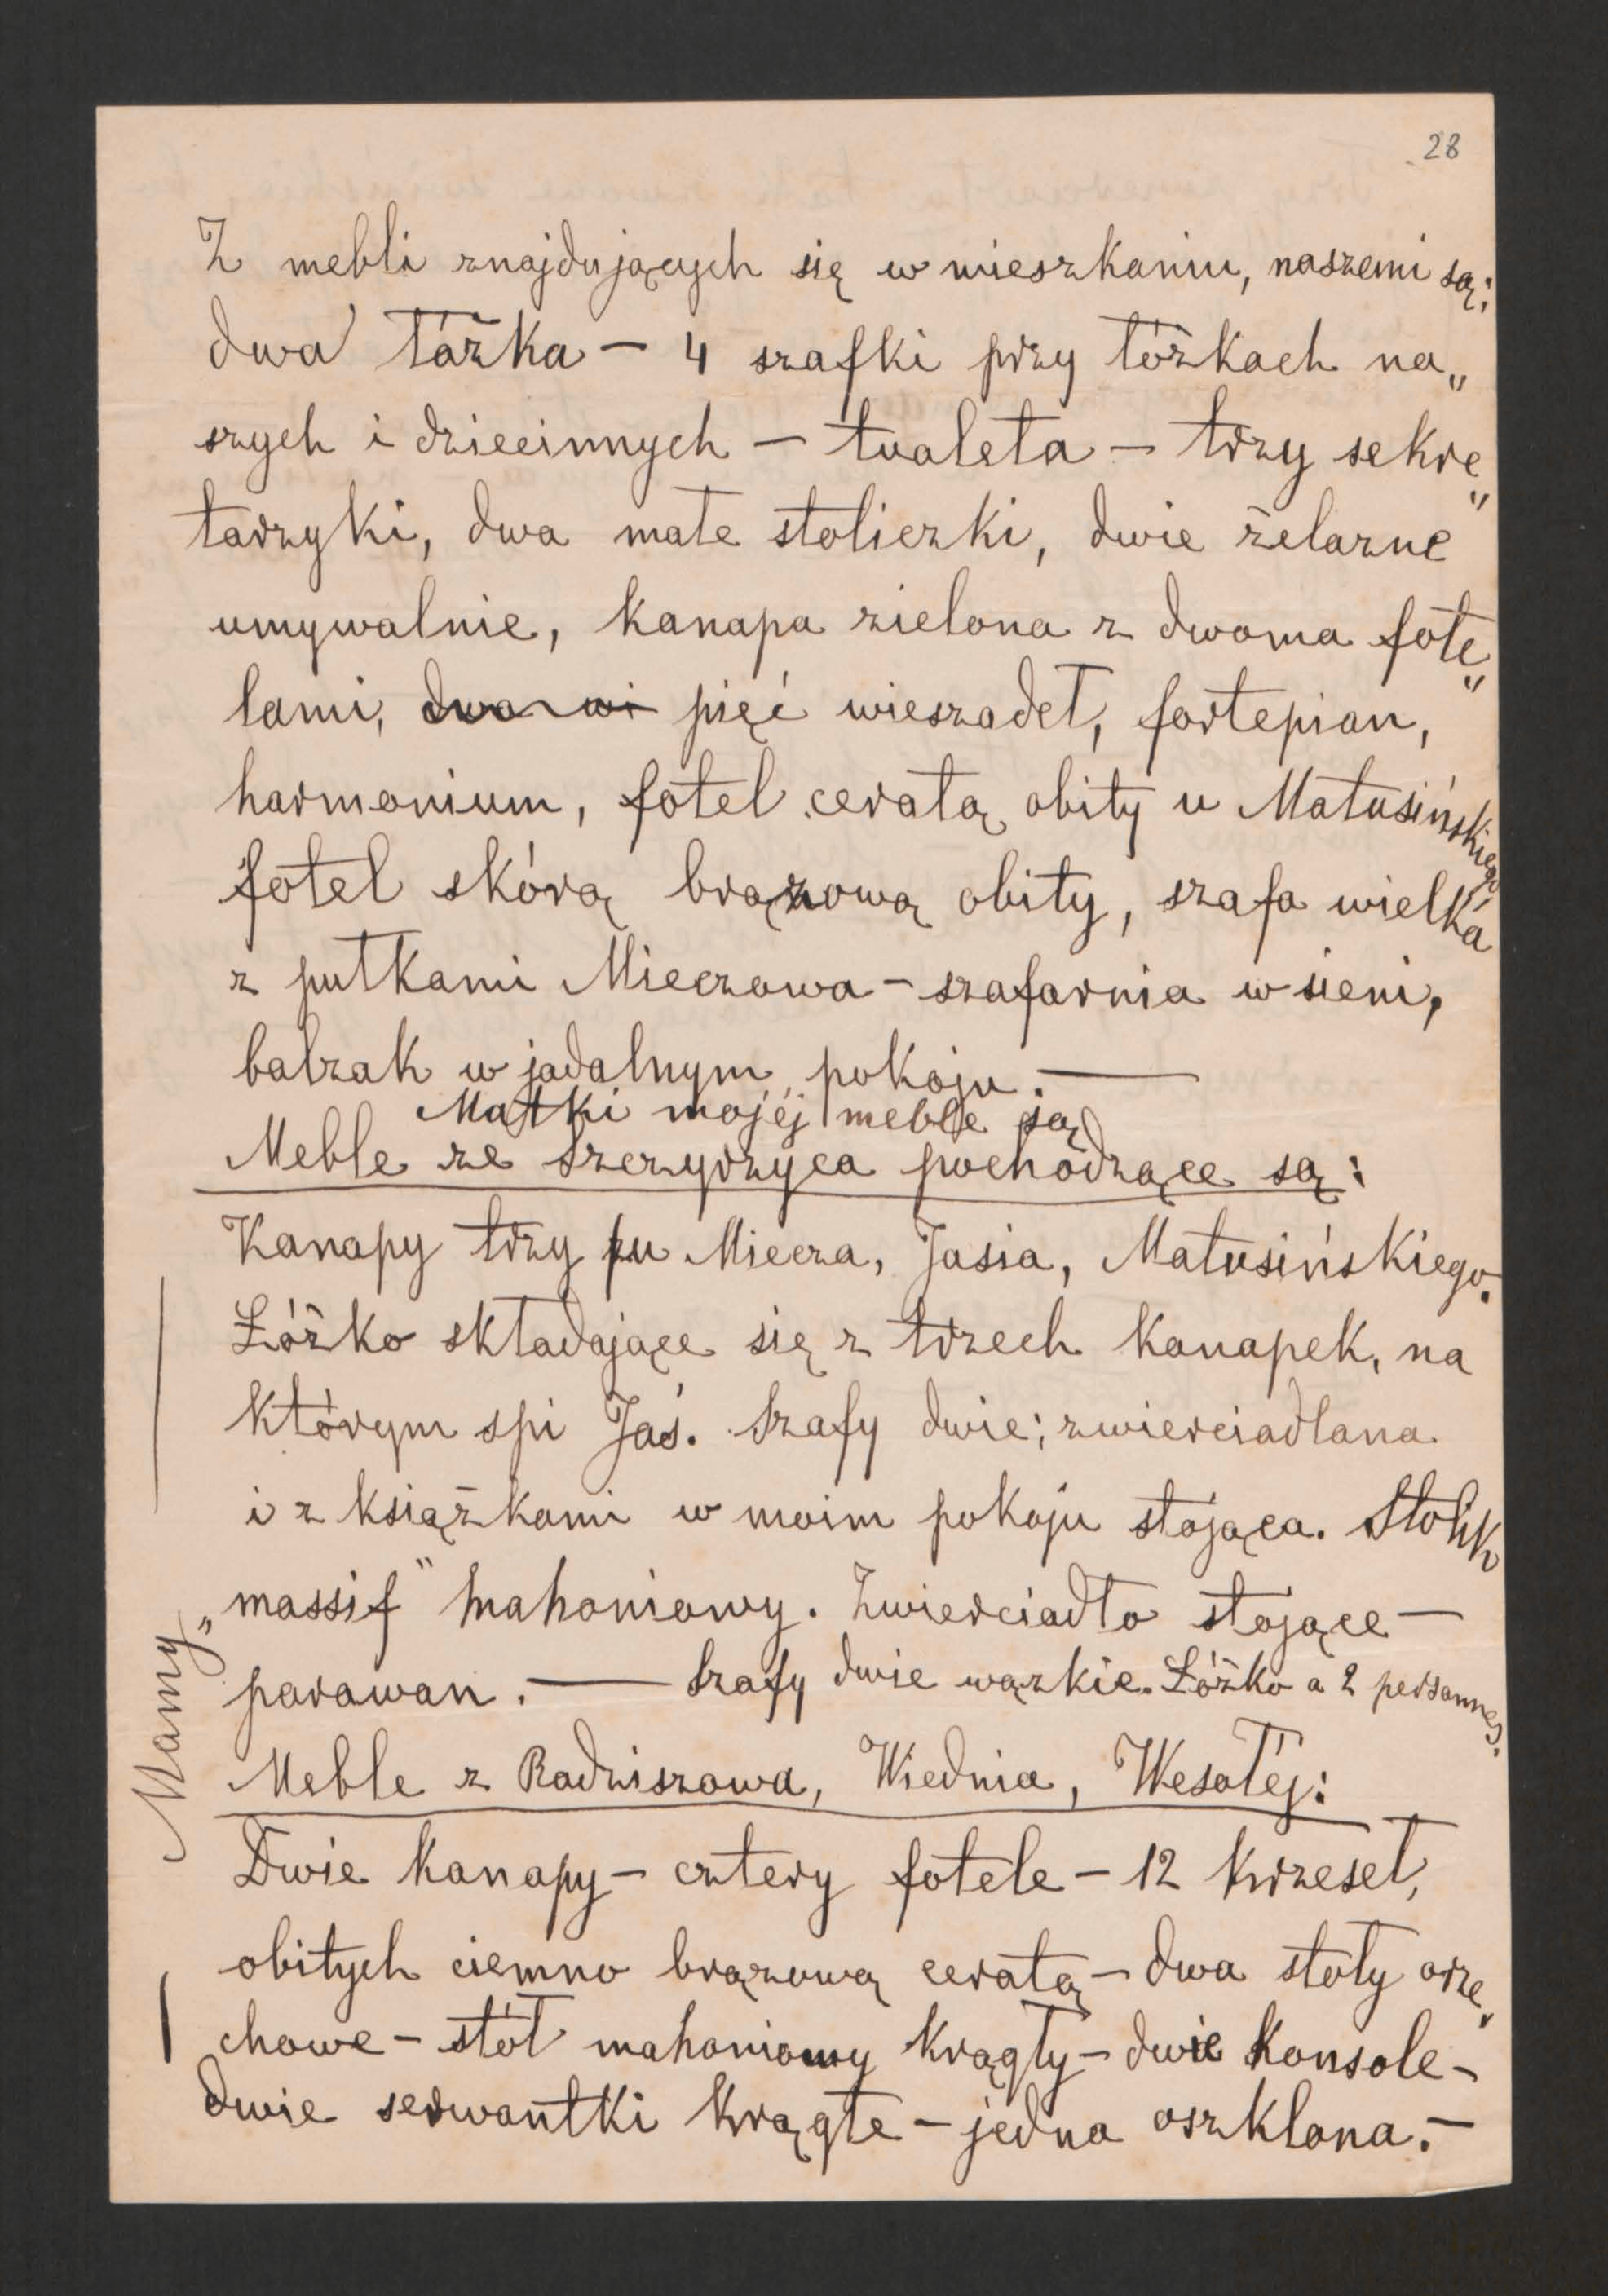 28
Z mebli znajdujących się w mieszkaniu, naszemi są:
dwa łóżka — 4 szafki przy łóżkach na„
szych i dziecinnych — tualeta — trzy sekre„
tarzyki, dwa małe stoliczki, dwie żelazne
umywalnie, kanapa zielona z dwoma fote„
lami, dwa wi pięć wieszadeł, fortepian,
harmonium, fotel ceratą obity u Matusińskiego,
fotel skórą brązową obity, szafa wielka
z pułkami Mieczowa — szafarnia w sieni,
balzak w jadalnym pokoju. —
Matki mojéj meble są
Meble ze Szczyrzyca pochodzące są:
Kanapy trzy u Miecza, Jasia, Matusińskiego.
Łóżko składające się z trzech kanapek, na
którym spi Jaś. Szafy dwie; zwierciadlana
i z książkami w moim pokoju stojąca. Stolik
„massif" mahoniowy. Zwierciadło stojące —
parawan. — Szafy dwie wązkie. Łóżko a 2 personnes.
Mamy
Meble z Radziszowa, Wiednia, Wesołéj:
Dwie kanapy — cztery fotele — 12 krzeseł,
obitych ciemno brązową ceratą — dwa stoły orze„
chowe — stół mahoniowy krągły — dwie konsole —
dwie serwantki krągłe — jedna oszklona. —